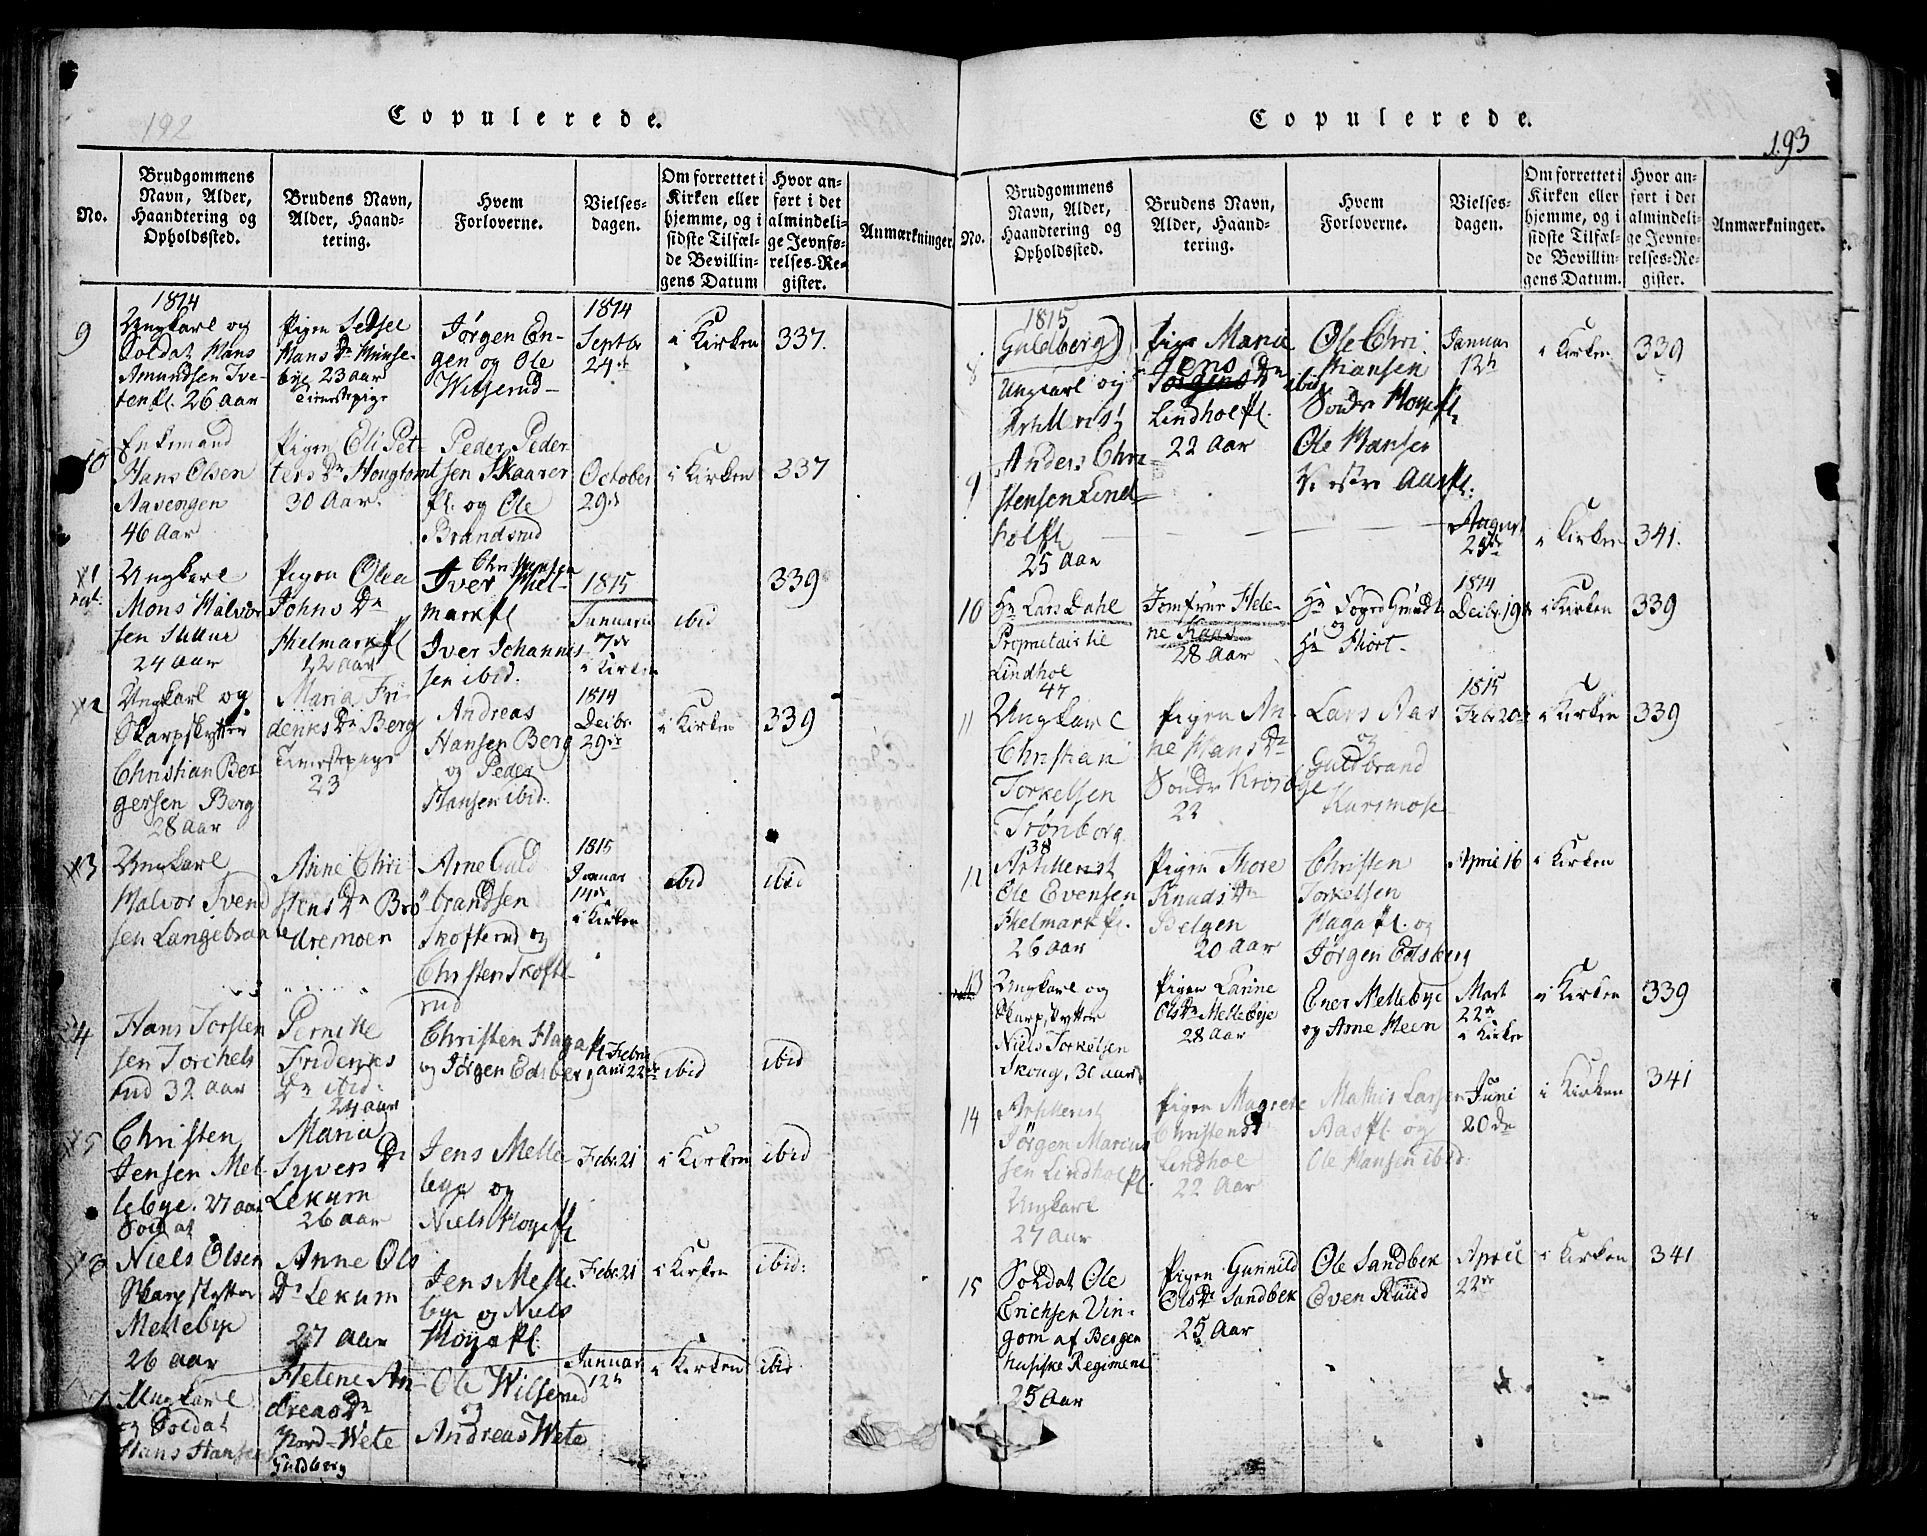 192
Copulerede.
No.
Brudgommens
Navn, Alder,
Haandtering og
Opholdssted.
Brudens Navn,
Alder, Haand-
tering.
Hvem
Forloverne.
Vielses-
dagen.
Om forrettet i
Kirken eller
hjemme, og i
sidste Tilfæl-
de Bevillin-
gens Datum
Hvor an-
ført i det
almindeli-
ge Jevnfø-
relses-Re-
gister.
Anmærkninger
1814
9
Ungkarl og
Soldat Hans
Amundsen
26 aar
Pigen Sedsel
Hans Dr
bye 23 aar
Jørgen En-
gen og Ole
Wilserud
1814
Septbr
24de
i Kirken
337.
10
Enkemand
Hans Olsen
Aasengen
46 aar
Pigen Eli Pet-
ters Dr
30 Aar
Peder Peder
sen Skaarer
pl. og Ole
Brandsrud
October
29de
i Kirken
337
Ungkarl
Mons Halvor
sen
24 aar
Pigen Olea
Johns Dr
Hielmark pl
22 aar
Christiansen
Iver Hiel-
mark pl
Iver Johannes
sen ibid.
1815
Januari
7de
i Kirken
ibid
339
Ungkarl og
Skarpskytter
Christian Ber
gersen Berg
28 aar
Maria Fri
deriks Dr Berg
Tienestepige
23
Andreas
Hansen Berg
og Peder
Hansen ibid.
1814
Decbr
29de
i Kirken
339
Ungkarl
Halvor Svend
sen Langebraate
Anne Chri
stens Dr Brö
dremoen
Arne Guld
brandsen
Skofterud og
Christen Skofte
rud
1815
Januar
14de
i Kirken
ibid
ibid
Hans Torsten
sen Torchels
rud 32 aar
Pernille
Frideriks
Dr ibid.
24 aar
Christen Haga pl
og Jørgen Edsberg
Febru
arii 22de
ibid
ibid
Christen
Jensen Mel
lebye. 27 aar
Soldat
Maria
Syvers Dr
Lekum
26 aar
Jens Melle
bye og
Niels Høye pl
Febr. 21
i Kirken
ibid
Niels Olsen
Skarpskytter
Mellebye
26 aar
Anne Ols
Dr Lekum
27 aar
Jens Melle
bye og Niels
Høye pl.
Febr. 21
i Kirken
ibid:
Ungkarl
og Soldat
Hans Hansen
Helene An
dreas Dr
Nord-Wete
Guldberg
Ole Wilserud
og
Andreas Wete
Januar
12te
i Kirken
ibid
193
Copulerede.
No.
Brudgommens
Navn, Alder,
Haandtering og
Opholdssted.
Brudens Navn,
Alder, Haand-
tering.
Hvem
Forloverne.
Vielses-
dagen.
Om forrettet i
Kirken eller
hjemme, og i
sidste Tilfæl-
de Bevillin-
gens Datum.
Hvor an-
ført i det
almindeli-
ge Jevnfø-
relses-Re-
gister.
Anmærkninger.
1815
Guldberg)
8
Ungkarl og
Artillerist
Anders Chri
stensen Lind
hol pl
25 Aar
Pige Marie
Jens
Jørgens Dr ibid
Lindhol pl.
22 Aar
Ole Chri
stiansen
Søndre Høye pl.
Ole Hansen
Vestre Aas pl.
Januar
12te
i Kirken
339
9
August
i Kirken
341.
10
Hr Lars Dahl
Proprietair til
Lindhol
47
Jomfrue Hele-
ne
28 Aar
Hr Foged
og
Hr Hiort
1814
Decbr. 19de
i Kirken
339
11
Ungkarl
Christian
Torkelsen
Trønborg
38
Pigen An-
ne Hans Dr
Søndr Krosbye
22
Lars Aas
og
Guldbrand
Kursmose
1815
Febr 20de
i Kirken
339
Artillerist
Ole Evensen
Hielmark pl.
26 aar
Pigen Thore
Knuds Dr
Belgen
20 aar
Christen
Torkelsen
Haga pl. og
Jørgen Edsberg
April 16
i Kirken
13
Ungkarl og
Skarpskytter
Niels Torkelsen
Skoug, 30 aar
Pigen Larine
Ols Dr Mellebye
28 Aar
Ener Mellebye
og Arne Heen
Mart
22de
i Kirken
i Kirken
339
14
Artillerist
Jørgen Marius
sen Lindhol pl.
Ungkarl
27 aar
Pigen Magrete
Christens Dr
Lindhol
22 Aar
Mathis Larsen
Aas pl. og
Ole Hansen ibid
Juni
20de
i Kirken
341
15
Soldat Ole
Erichsen Vin-
gom af Bergen
husiske Regiment
25 Aar
Pigen Gunnild
Ols Dr Sandbek
25 Aar
Ole Sandbek
Even Ruud
April
22de
i Kirken
341